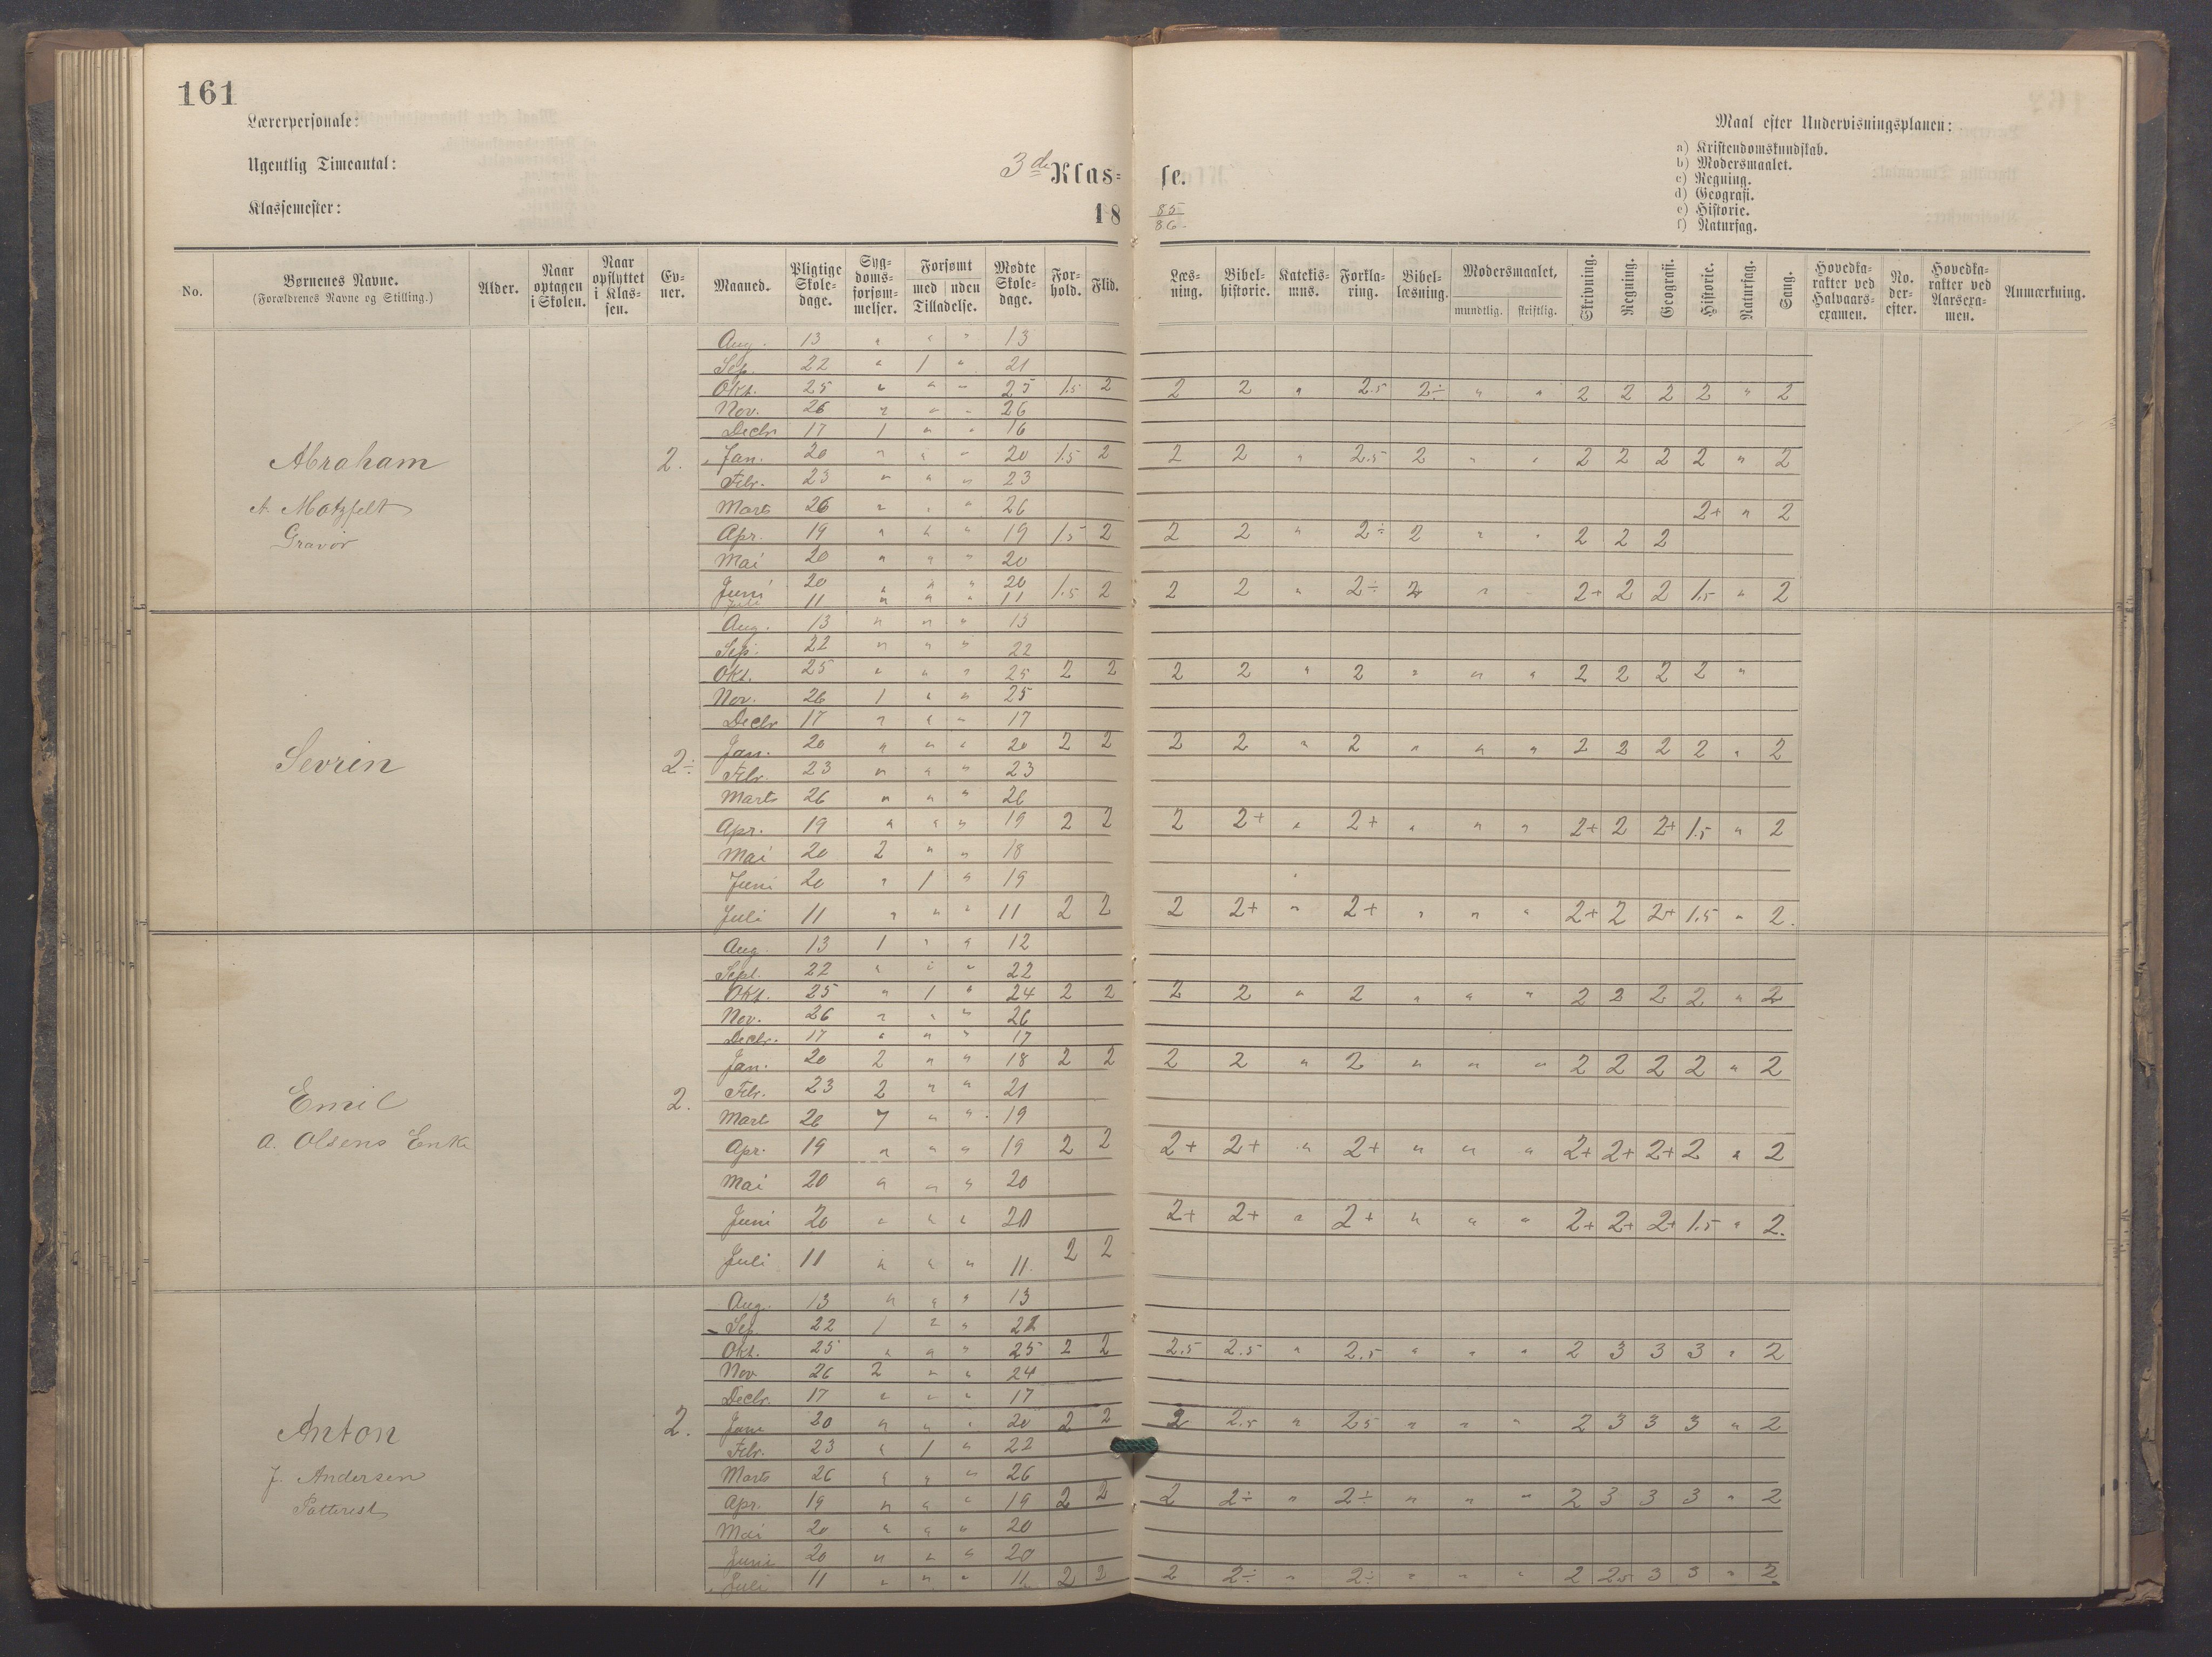 161
Lærerpersonale:
Ugentlig Timeantal:
Klassemester:
3de Klas- se.
18 85/86
Maal efter Undervisningsplanen:
a) Kristendomskundskab.
b) Modersmaalet.
c) Regning.
d) Geografi.
e) Historie.
f) Naturfag.
No. | Børnenes Navne. (Forældrenes Navne og Stilling.) | Alder. | Naar optagen i Skolen. | Naar opflyttet i Klassen. | Evner. | Maaned. | Pligtige Skoledage. | Sygdomsforsømmelser. | Forsømt med uden Tilladelse. | Mødte Skoledage. | Forhold. | Flid. | Læsning. | Bibelhistorie. | Katekismus. | Forklaring. | Bibellæsning. | Modersmaalet, mundtlig. skriftlig. | Skrivning. | Regning. | Geografi. | Historie. | Naturfag. | Sang. | Hovedkarakter ved Halvaarsexamen. | No. derefter. | Hovedkarakter ved Aarsexamen. | Anmærkning.
Abraham
A. Motzfelt
Gravør
2.
Aug. 13 " " " 13
Sep. 22 " 1 " 21
Okt. 25 " " " 25 1.5 2 2 2 " 2.5 2÷ " " 2 2 2 2 " 2
Nov. 26 " " " 26
Decbr 17 1 " " 16
Jan. 20 " " " 20 1.5 2 2 2 " 2.5 2 " " 2 2 2 2 " 2
Febr. 23 " " " 23
Marts 26 " " " 26 2+ " 2
Apr. 19 " " " 19 1.5 2 2 2 " 2÷ 2 " " 2 2 2
Mai 20 " " " 20
Juni 20 " " " 20 1.5 2 2 2 " 2÷ 2 " 2+ 2 2 1.5 " 2
Juli 11 " " " 11
Sevrin
2÷
Aug. 13 " " " 13
Sep. 22 " " " 22
Okt. 25 " " " 25 2 2 2 2 " 2 " " " 2 2 2 2 "
Nov. 26 1 " " 25
Decbr 17 " " " 17
Jan. 20 " " " 20 2 2 2 2 " 2 " " " 2 2 2 2 " 2
Febr. 23 " " " 23
Marts 26 " " " 26
Apr. 19 " " " 19 2 2 2 2+ " 2+ " " " 2+ 2 2+ 1.5 " 2
Mai 20 2 " " 18
Juni 20 " 1 " 19
Juli 11 " " " 11 2 2 2 2+ " 2+ " " " 2+ 2 2+ 1.5 " 2.
Emil
A. Olsens Enke
2.
Aug. 13 1 " " 12
Sept. 22 " " " 22
Okt. 25 " 1 " 24 2 2 2 2 " 2 " " " 2 2 2 2 " 2
Nov. 26 " " " 26
Decbr. 17 " " " 17
Jan. 20 2 " " 18 2 2 2 2 " 2 " " " 2 2 2 2 " 2
Feb. 23 2 " " 21
Marts 26 7 " " 19
Apr. 19 " " " 19 2 2 2+ 2+ " 2+ " " " 2+ 2+ 2+ 2 " 2
Mai 20 " " " 20
Juni 20 " " " 20 2+ 2+ " 2+ " " " 2+ 2+ 2+ 1.5 " 2.
Juli 11 " " " 11. 2 2
Anton
J. Andersen
2.
Aug. 13 " " " 13
Sep. 22 1 " " 21
Okt. 25 " " " 25 2 2 2.5 2.5 " 2.5 " " " 2 3 3 3 " 2
Nov 26 2 " " 24
Decbr. 17 " " " 17
Jan 20 " " " 20 2 2 2 2.5 " 25 " " " 2 3 3 3 " 2
Febr. 23 " 1 " 22
Marts 26 " " " 26
Apr. 19 " " " 19 2 2 2 2÷ " 2÷ " " " 2 3 3 3 " 2
Mai 20 " " " 20
Juni 20 " " " 20
Juli 11 " " " 11 2 2 2 2÷ " 2÷ " " " 2 2.5 3 3 " 2.